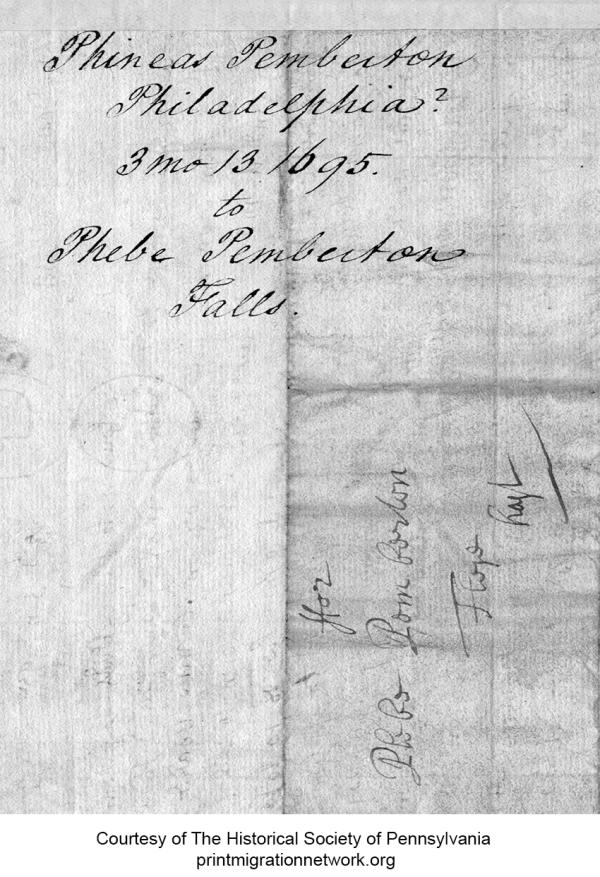 Phineas Pemberton
Philadelphia?
3 mo 13 1695.
to
Phebe Pemberton
Falls.
ffor
Phebe Pemberton
Courtesy of The Historical Society of Pennsylvania
printmigrationnetwork.org